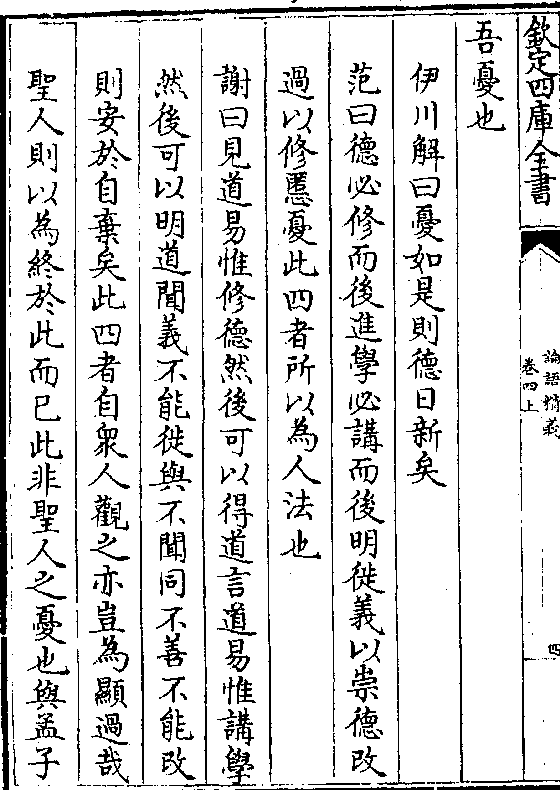 欽定四庫全書
論語精義
卷四上
四
吾憂也
伊川解曰憂如是則德日新矣
范曰德必修而後進學必講而後明徙義以崇德改
過以修慝憂此四者所以為人法也
謝曰見道易惟修德然後可以得道言道易惟講學
然後可以明道聞義不能徙與不聞同不善不能改
則安於自棄矣此四者自衆人觀之亦豈為顯過哉
聖人則以為終於此而已此非聖人之憂也與孟子